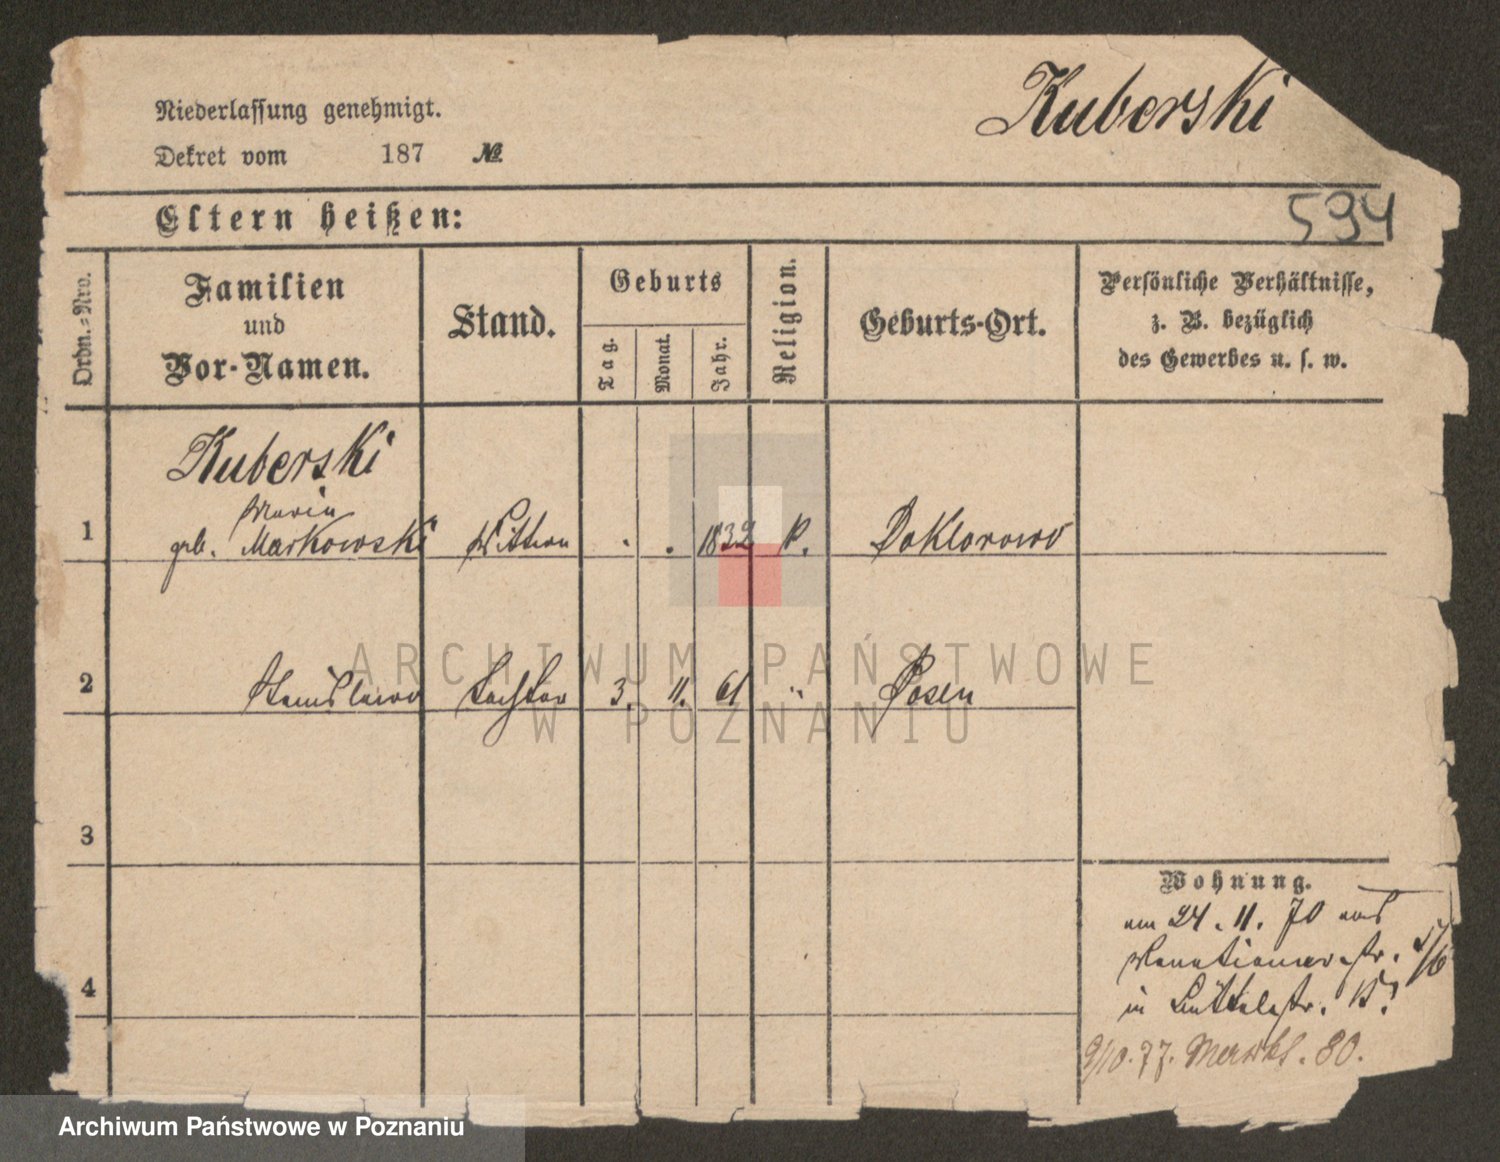 Kuberski
Niederlassung genehmigt.
Dekret vom 187 №
594
Eltern heißen:
Ordn.=Nro.
Familien
und
Vor-Namen.
Stand.
Geburts
Tag.
Monat.
Jahr.
Religion.
Geburts-Ort.
Persönliche Verhältnisse,
z. B. bezüglich
des Gewerbes u. s. w.
Kuberski
Maria
1 geb. Markowski Wittwe . . 1832 k. Doktorowo
2 Stanislawa Tochter 3. 11. 61 " Posen
3
4
Wohnung.
am 24. 11. 70 aus
Venetianerstr. 5/6
in 15
9/10. 77. 80.
ARCHIWUM PAŃSTWOWE
W POZNANIU
Archiwum Państwowe w Poznaniu